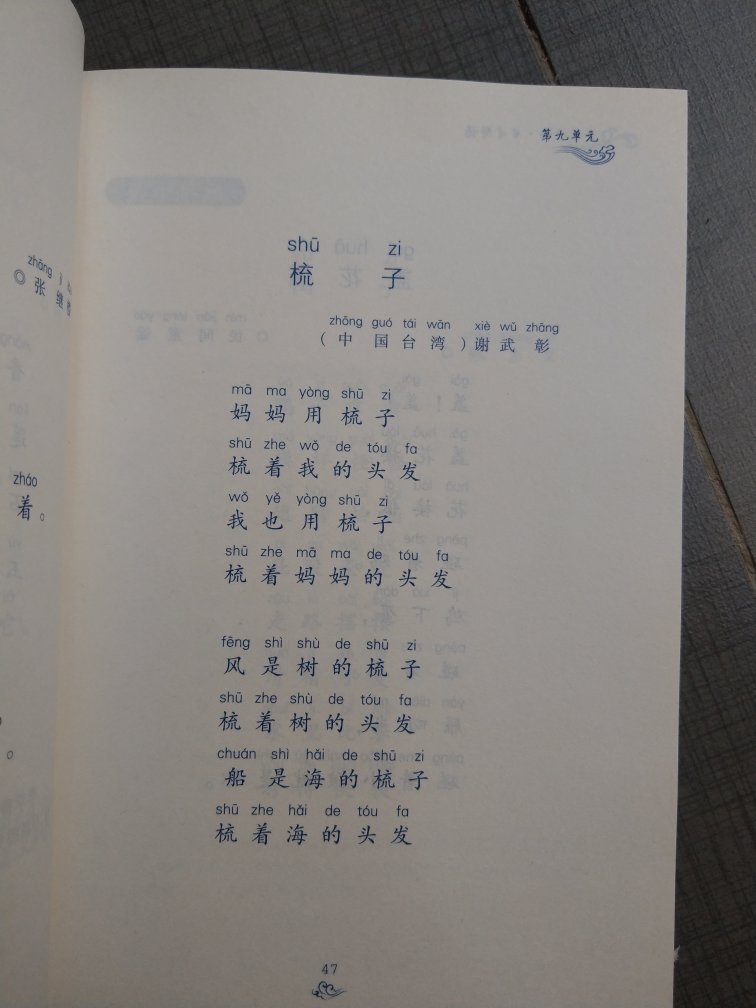 zhāng
◎张
zháo
着。
。
第九单元
shū zi
梳子
zhōng guó tái wān xiè wǔ zhāng
(中国台湾)谢武彰
mā ma yòng shū zi
妈妈用梳子
shū zhe wǒ de tóu fa
梳着我的头发
wǒ yě yòng shū zi
我也用梳子
shū zhe mā ma de tóu fa
梳着妈妈的头发
fēng shì shù de shū zi
风是树的梳子
shū zhe shù de tóu fa
梳着树的头发
chuán shì hǎi de shū zi
船是海的梳子
shū zhe hǎi de tóu fa
梳着海的头发
47